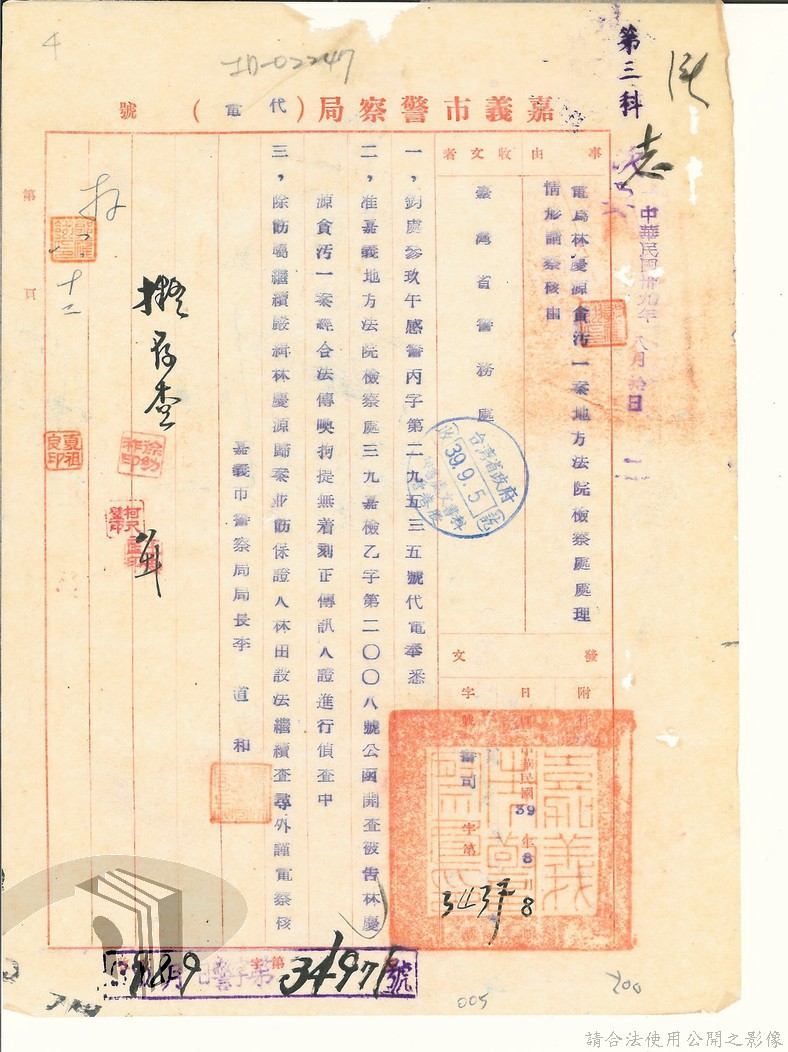 4
JD-02247
第三科
嘉義市警察局(代電) 號
中華民國卅九年八月拾日
事由
電爲林慶源貪汚一案地方法院檢察處處理
情形請察核由
收文者
臺灣省警務處
發文
附件
日期
中華民國39年8
字號
警司字第
34378
一,鈞處參玖午感警丙字第二九五三五號代電奉悉
二,准嘉義地方法院檢察處三九嘉檢乙字第二〇〇八號公函開查被告林慶
源貪汚一案經合法傳喚拘提無着刻正傳訊人證進行偵查中
三,除飭屬繼續嚴緝林慶源歸案並飭保證人林田設法繼續查尋外謹電察核
嘉義市警察局局長李道和
台灣省政府
收 39.9.5 記
擬存查
夏祖良印
第 頁
十二
第34971號
005
200
請合法使用公開之影像